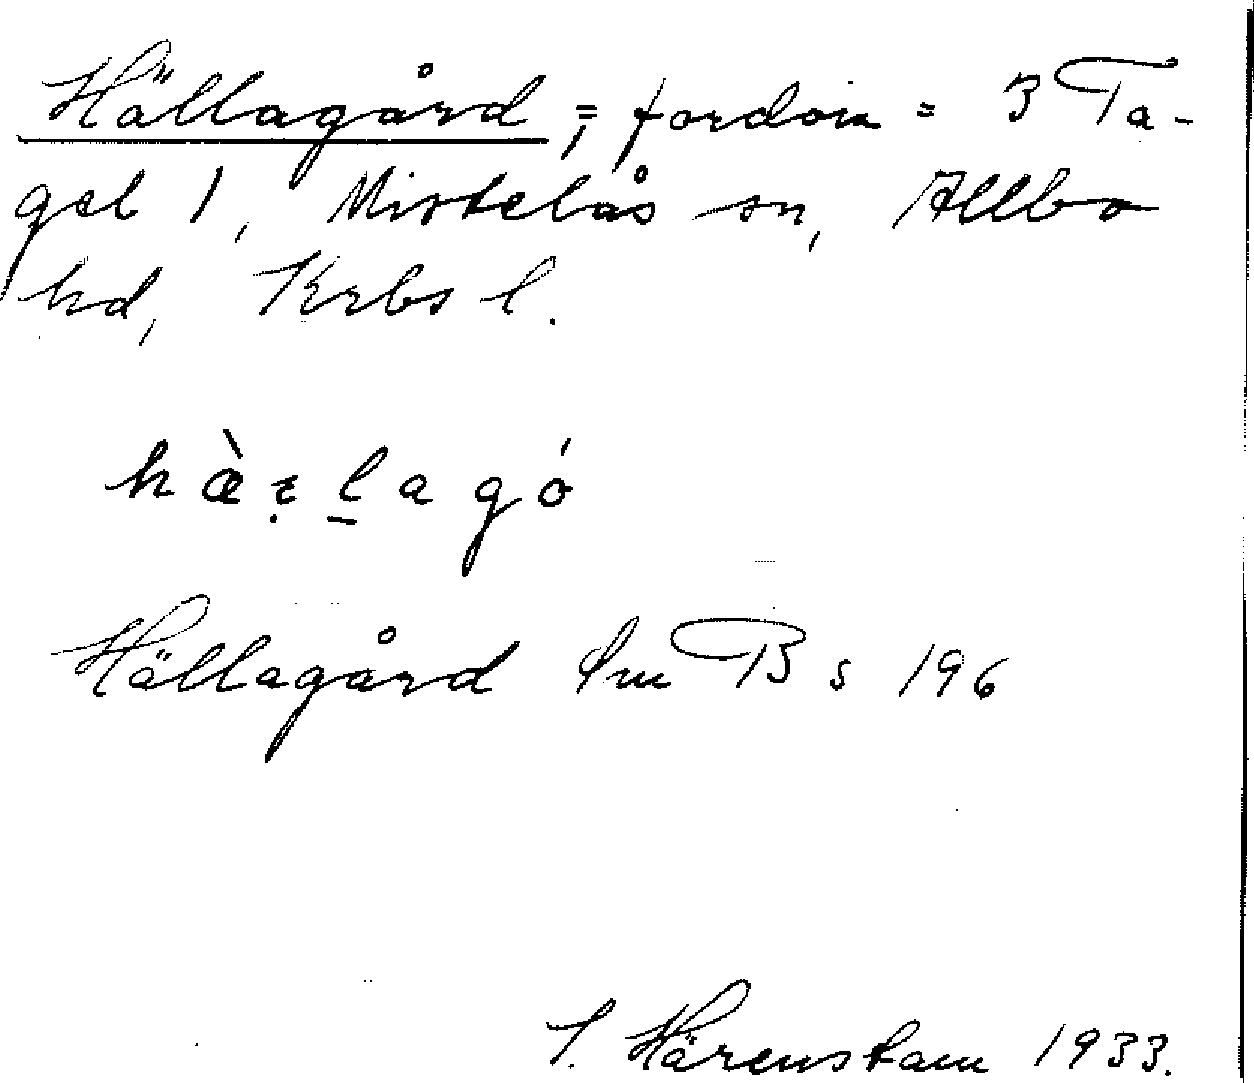 Hällagård, = fordom = 3 Ta-
gel 1, Mistelås sn, Allbo
hd, Krbs l.
hæ̀ẓḻagó
Hällagård Sm B s 196
S. Härenstam 1933.